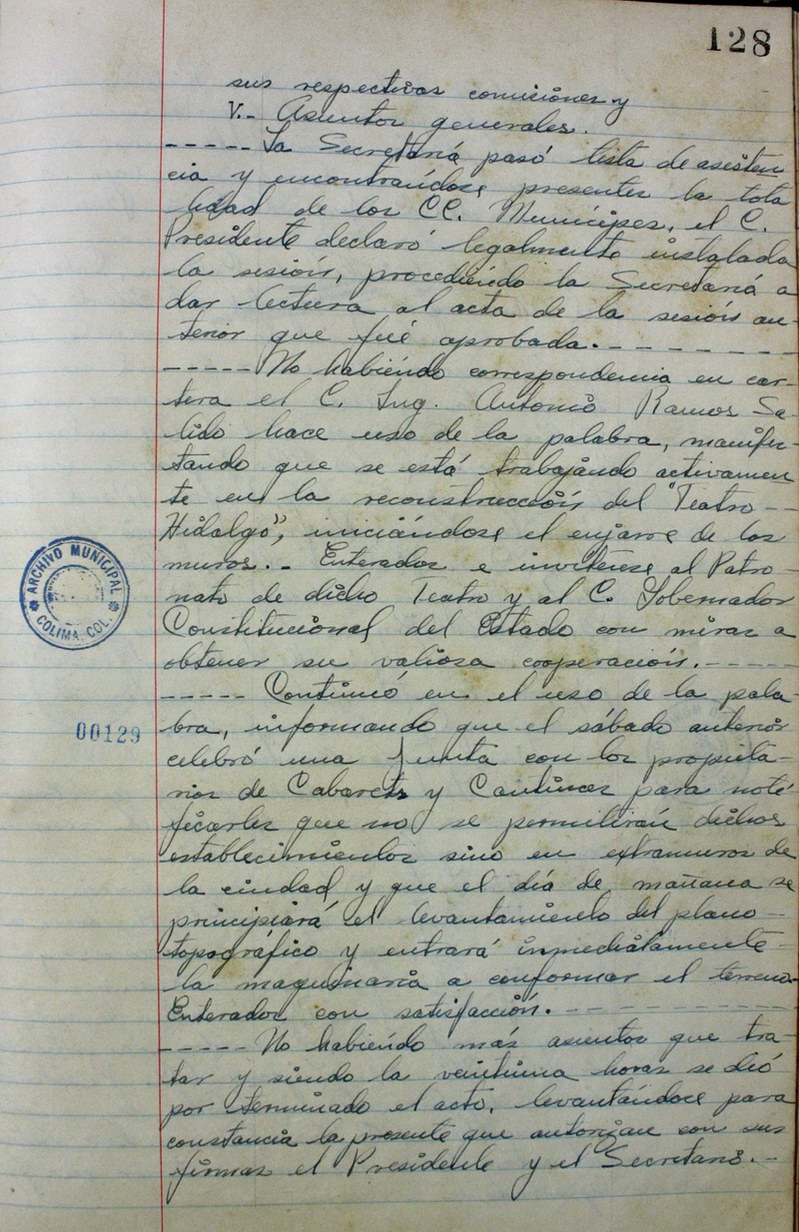 128
sus respectivas comisiones y
V.- Asuntos generales.
----- La Secretaría pasó lista de asisten
cia y encontrándose presentes la tota
lidad de los CC. Munícipes, el C.
Presidente declaró legalmente instalada
la sesión, procediendo la Secretaría a
dar lectura al acta de la sesión an-
terior que fué aprobada.-------
----- No habiendo correspondencia en car-
tera el C. Ing. Antonio Ramos Sa-
lido hace uso de la palabra, manifes-
tando que se está trabajando activamen
te en la reconstrucción del "Teatro--
Hidalgo", iniciándose el enjarre de los
muros.- Enterados e invítese al Patro-
nato de dicho Teatro y al C. Gobernador
Constitucional del Estado con miras a
obtener su valiosa cooperación.-----
----- Continuó en el uso de la pala-
bra, informando que el sábado anterior
celebró una junta con los propieta-
rios de Cabarets y Cantinas para noti
ficarles que no se permitirán dichos
establecimientos sino en extramuros de
la ciudad y que el día de mañana se
principiará el levantamiento del plano-
topográfico y entrará inmediatamente-
la maquinaria a conformar el terreno-
Enterados con satisfacción.--------
----- No habiendo más asuntos que tra-
tar y siendo la veintiuna horas se dió
por terminado el acto, levantándose para
constancia la presente que autorizan con sus
firmas el Presidente y el Secretario.--
ARCHIVO MUNICIPAL
COLIMA, COL.
00129